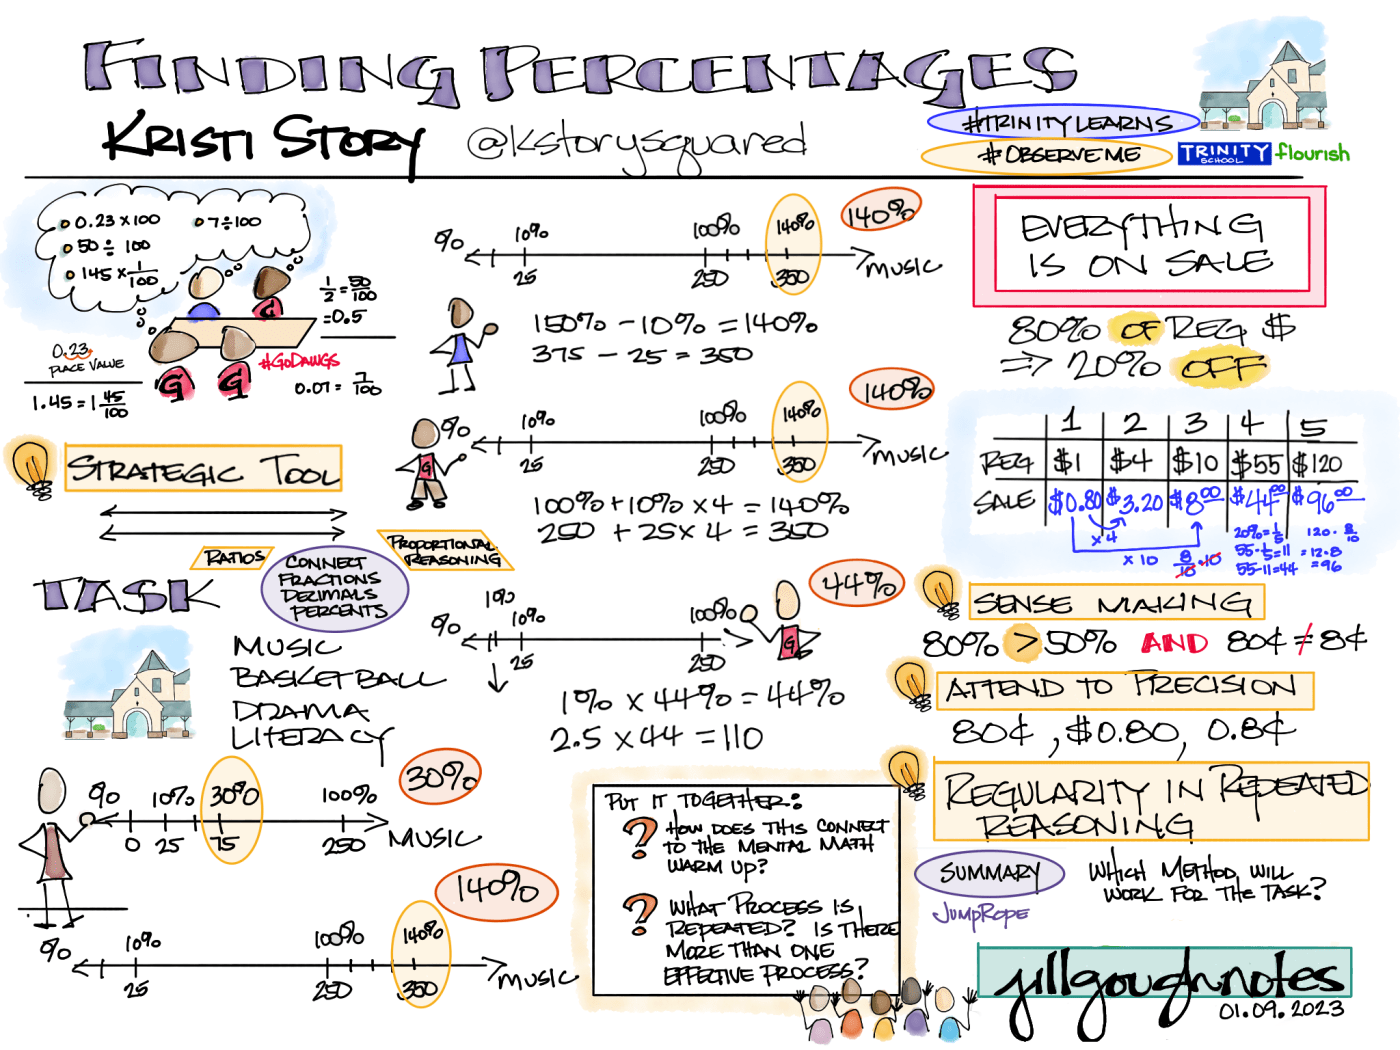 FINDING PERCENTAGES
KRISTI STORY @kstorysquared
#TRINITYLEARNS
#OBSERVEME
TRINITY
SCHOOL
flourish
0.23 x 100
7 ÷ 100
50 ÷ 100
145 x 1/100
1/2 = 50/100
= 0.5
0.23
PLACE VALUE
#GODAWGS
G
G
G
1.45 = 1 45/100
0.07 = 7/100
STRATEGIC TOOL
RATIOS
CONNECT
FRACTIONS
DECIMALS
PERCENTS
PROPORTIONAL
REASONING
TASK
MUSIC
BASKETBALL
DRAMA
LITERACY
30%
% 10% 30% 100%
0 25 75 250 MUSIC
140%
% 10% 100% 140%
25 250 350 MUSIC
140%
% 10% 100% 140%
25 250 350 MUSIC
150% - 10% = 140%
375 - 25 = 350
140%
% 10% 100% 140%
25 250 350 MUSIC
G
100% + 10% x 4 = 140%
250 + 25 x 4 = 350
44%
% 1% 10% 100%
25 250
G
1% x 44% = 44%
2.5 x 44 = 110
PUT IT TOGETHER:
? HOW DOES THIS CONNECT
TO THE MENTAL MATH
WARM UP?
? WHAT PROCESS IS
REPEATED? IS THERE
MORE THAN ONE
EFFECTIVE PROCESS?
EVERYTHING
IS ON SALE
80% OF REG $
⇒ 20% OFF
1 2 3 4 5
REG $1 $4 $10 $55 $120
SALE $0.80 $3.20 $8.00 $44.00 $96.00
x 4
x 10
8/10 · 10
20% = 1/5
55 · 1/5 = 11
55 - 11 = 44
120 · 8/10
= 12 · 8
= 96
SENSE MAKING
80% > 50% AND 80¢ ≠ 8¢
ATTEND TO PRECISION
80¢, $0.80, 0.8¢
REGULARITY IN REPEATED
REASONING
SUMMARY
JUMPROPE
WHICH METHOD WILL
WORK FOR THE TASK?
jillgoughnotes
01.09.2023